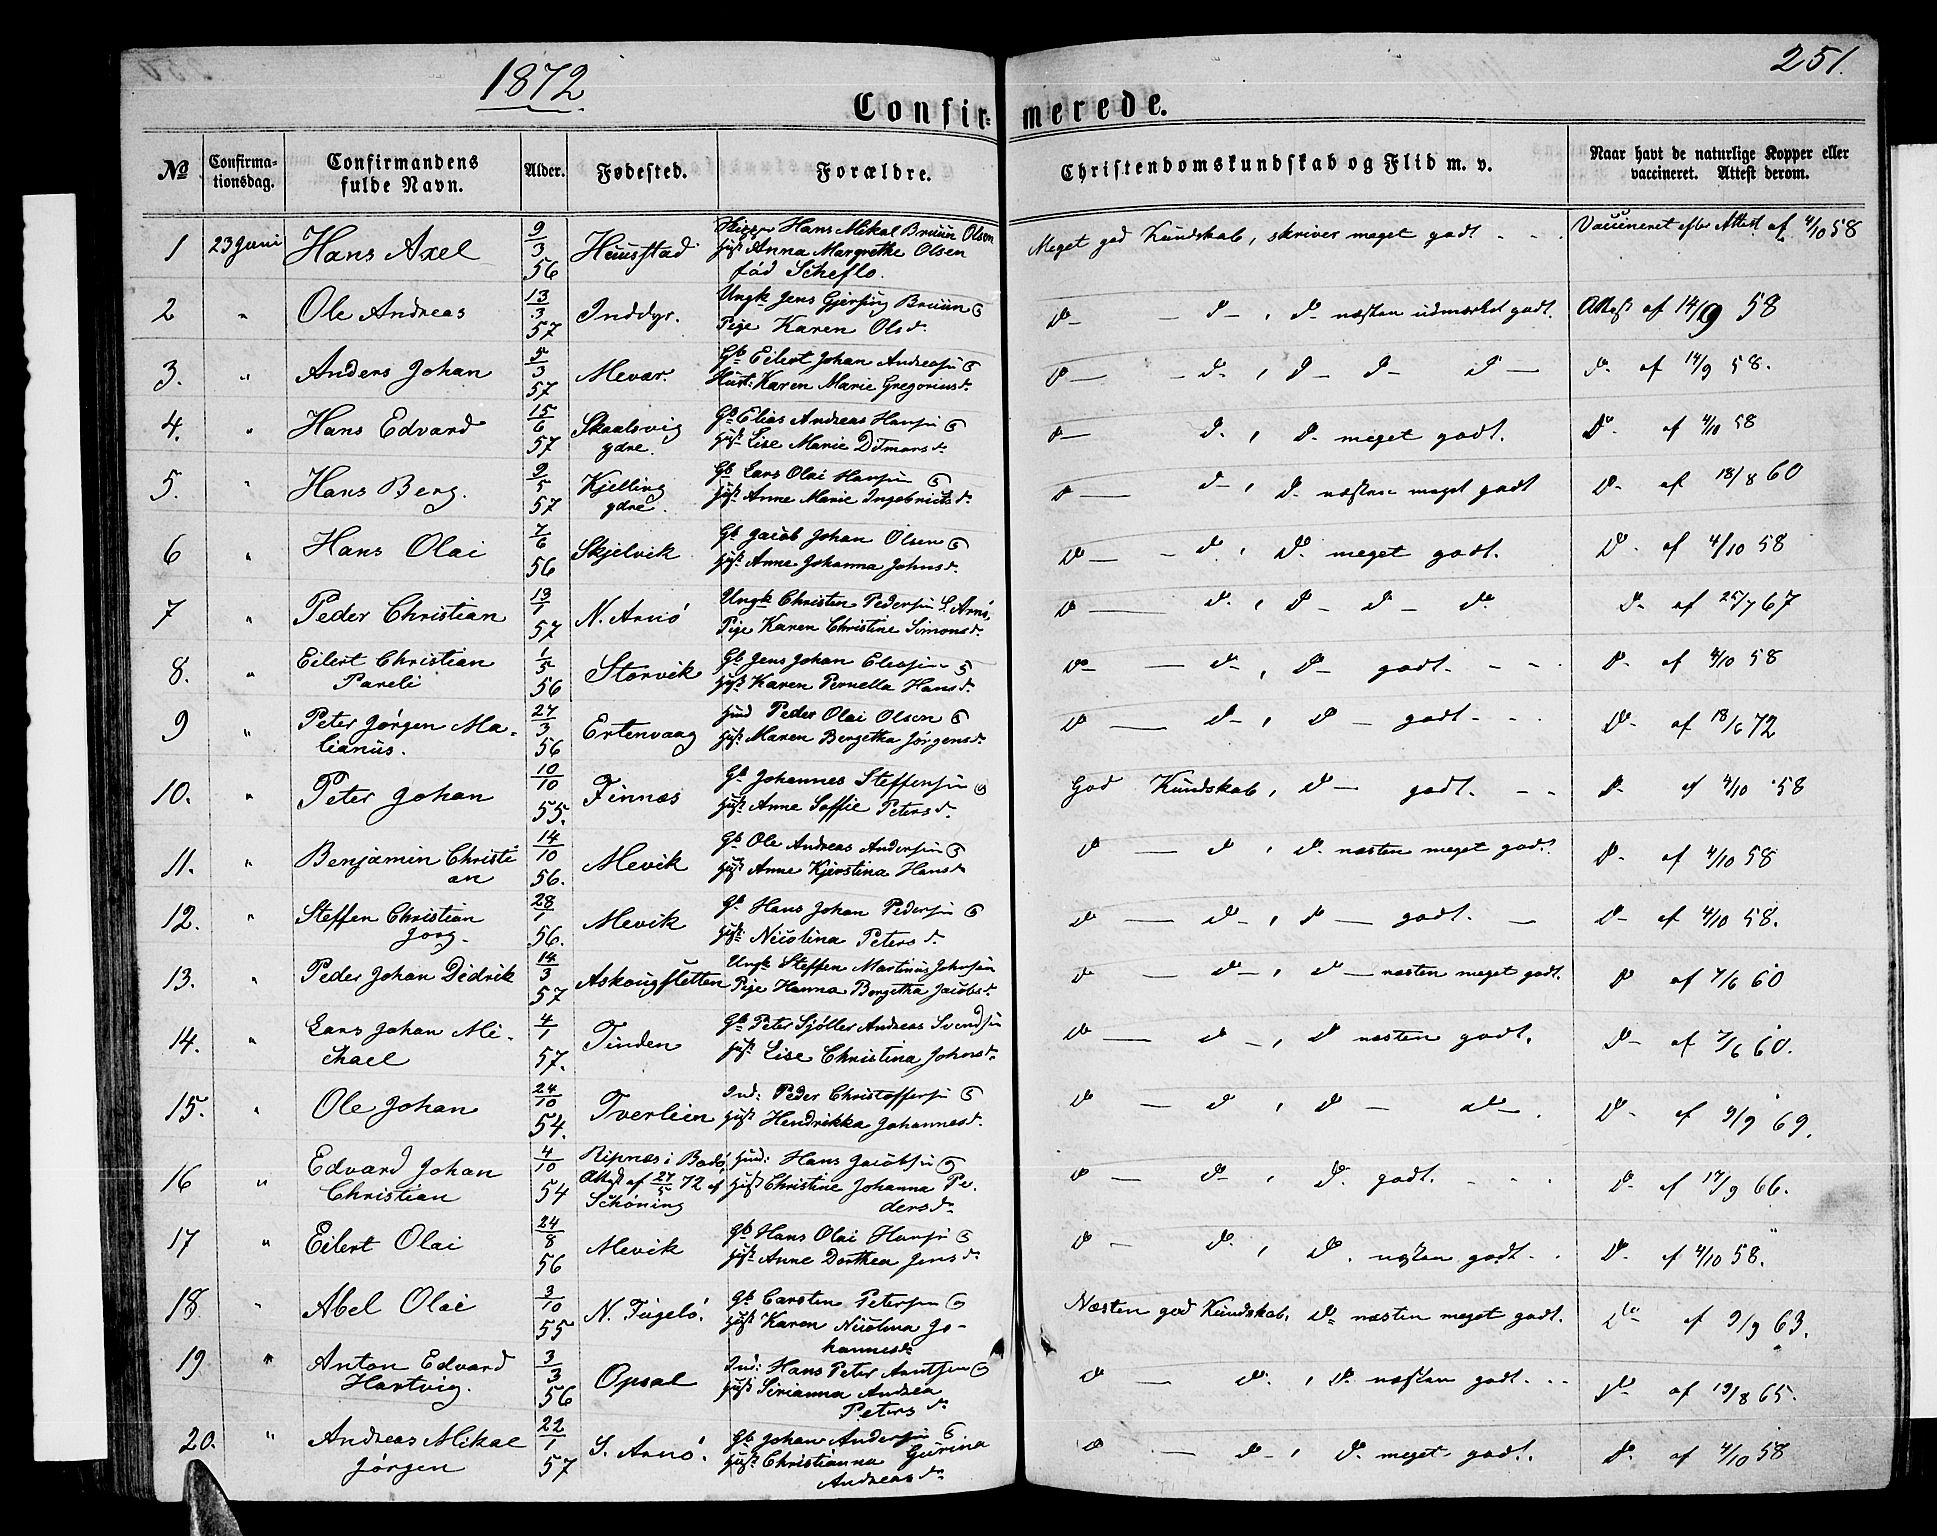 1872
251.
Confir= merede.
No Confirma-tionsdag. Confirmandens fulde Navn. Alder. Fødested. Forældre. Christendomskundskab og Flid m. v. Naar havt de naturlige Kopper eller vaccineret. Attest derom.
1 23 Juni Hans Axel 9/3 56 Heusstad Hans Mikal Bruun Olsen Hust Anna Margrethe Olsen fød Scheflo. Meget god Kundskab, skriver meget godt - - Vaccineret efter Attest af 4/10 58
2 " Ole Andreas 13/3 57 Inddyr. Ungk Jens Gjersing Bruun Pige Karen Olsd. Do - do -, do næsten udmærket godt. Attest af 14/9 58
3. " Anders Johan 5/3 57 Mevær. Gb Eilert Johan Andreas Hust: Karen Marie Gregoriusd. Do - do, do - do - do - do af 14/9 58.
4. " Hans Edvard 15/6 57 Skaalsvig ydre. Gb Elias Andreas Hansen Hust Lise Marie Ditmarsd. Do - do, do meget godt. Do af 4/10 58
5. " Hans Berg. 9/5 57 Kjelling ydre. Gb Lars Olai Hansen Hust Anne Marie Ingebrictsd. Do - do, do næsten meget godt Do af 18/8 60
6 " Hans Olai 7/6 56 Skjelvik Gb Jacob Johan Olsen Hust Anne Johanna Johnsd. Do - do, do meget godt. Do af 4/10 58
7 " Peder Christian 19/1 57 N. Arnø Ungk Christen Pedersen S. Arnø, Pige Karen Christine Simonsd. Do - do, do - do - do Do af 25/7 67
8. " Eilert Christian Pareli 1/5 56 Storvik Gb Jens Johan Eliasen Hust Karen Pernella Hansd. Do - do, do godt - - Do af 4/10 58
9 " Peter Jørgen Ma-lianus. 27/3 56 Ertenvaag Hmd Peder Olai Olsen Hust: Maren Bergetha Jørgensd. Do - do, do - godt - - Do af 18/6 72
10. " Peter Johan 10/10 55. Finnæs Gb Johannes Steffensen Hust Anne Soffie Petersd. God Kundskab, do - godt. - - Do af 4/10 58
11. " Benjamin Christi an 14/10 56. Mevik Gb Ole Andreas Andersen Hust Anne Kjerstina Hansd Do - do, do næsten meget godt. Do af 4/10 58
12. " Steffen Christian Jorg. 28/1 56. Mevik Gb Hans Johan Pedersen Hust: Nicolina Petersd. Do - do, do - godt. - Do af 4/10 58.
13. " Peder Johan Didrik 14/3 57 Askougsletten Ungk Steffen Martinus Johnsen Pige Hanna Bergetha Jacobsd. Do - do -, do - næsten meget godt. Do af 7/6 60
14. " Lars Johan Mi-chael 4/1 57. Tinden Gb Peter Sjøller Andreas Svendsen Hust Lise Christina Johnsd. Do - do -, do næsten godt. Do af 7/6 60.
15. " Ole Johan 24/10 54. Tverlien Ind: Peder Christoffersen Hust Hendrikka Johannesd. Do - do, do - do. Do af 9/9 69.
16 " Edvard Johan Christian 4/10 54 Ripnæs i Bodø, Attest af 27/5 72 af Schøning Hmd: Hans Jacobsen Hust Christine Johanna Pe-dersd. Do - do, do godt. - - Do af 17/9 66.
17 " Eilert Olai 24/8 56 Mevik Gb Hans Olai Hansen Hust Anne Dorthea Jensd. Do - do, do næsten godt. - Do af 4/10 58.
18 " Abel Olai 3/10 55 N. Fugelø. Gb Carsten Petersen Hust Karen Nicolina Jo-hannesd. Næsten god Kundskab, do næsten meget godt. Do af 9/9 63.
19 " Anton Edvard Hartvig. 3/3 56 Opsal Ind: Hans Peter Arntsen Hust Sirianna Andrea Petersd. Do - do, do næsten godt. - - Do af 19/8 65.
20. " Andreas Mikal Jørgen 22/1 57 S. Arnø. Gb Johan Andersen Hust Christianna Gurina Andreasd. Do - do, do meget godt. Do af 4/10 58